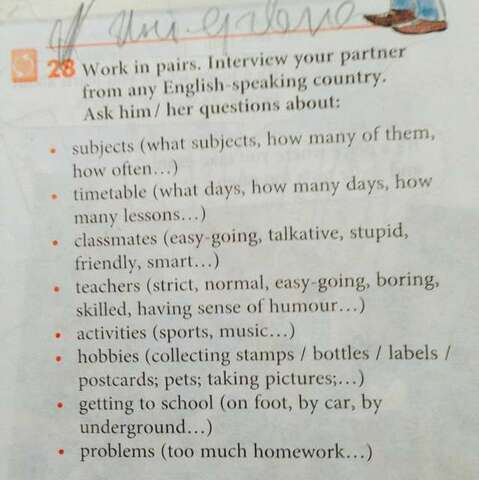 28 Work in pairs. Interview your partner
from any English-speaking country.
Ask him / her questions about:
• subjects (what subjects, how many of them,
how often...)
• timetable (what days, how many days, how
many lessons...)
• classmates (easy-going, talkative, stupid,
friendly, smart...)
• teachers (strict, normal, easy-going, boring,
skilled, having sense of humour...)
• activities (sports, music...)
• hobbies (collecting stamps / bottles / labels /
postcards; pets; taking pictures;...)
• getting to school (on foot, by car, by
underground...)
• problems (too much homework...)